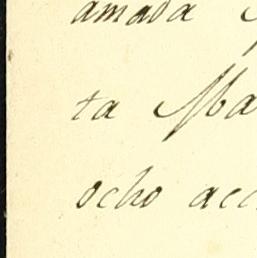 amada
ta Ma
ocho acc